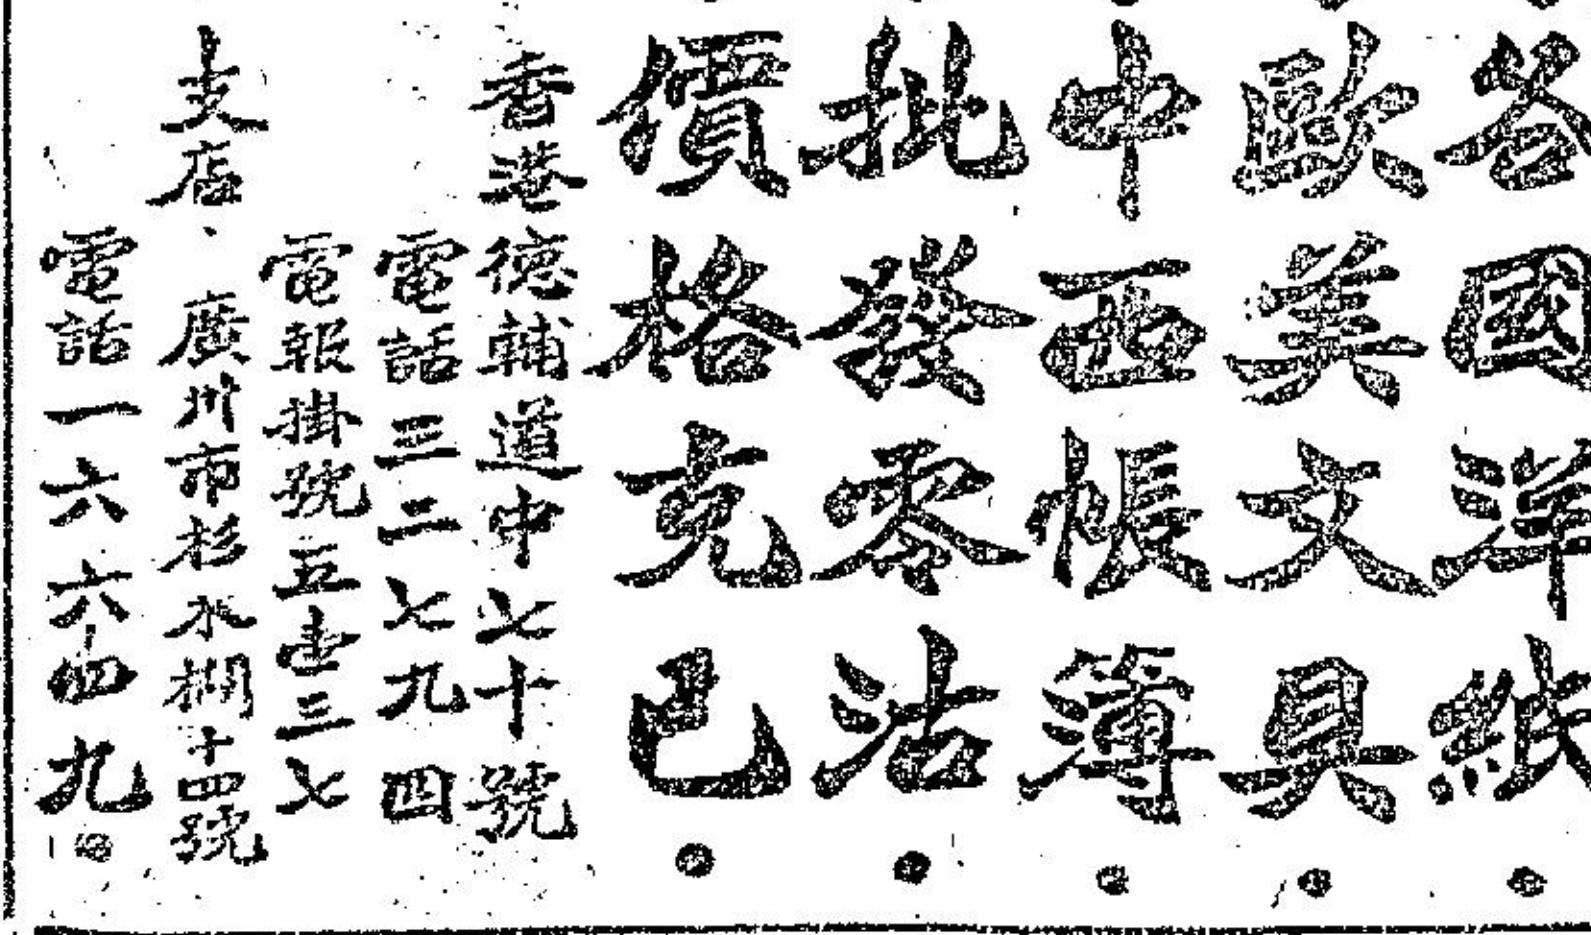 各國洋紙
歐美文具
中西帳簿
批發零沽
價格克己
香港德輔道中七十號
電話三二七九四
電報掛號五壹三七
支店、廣州市杉木欄十四號
電話一六六四九